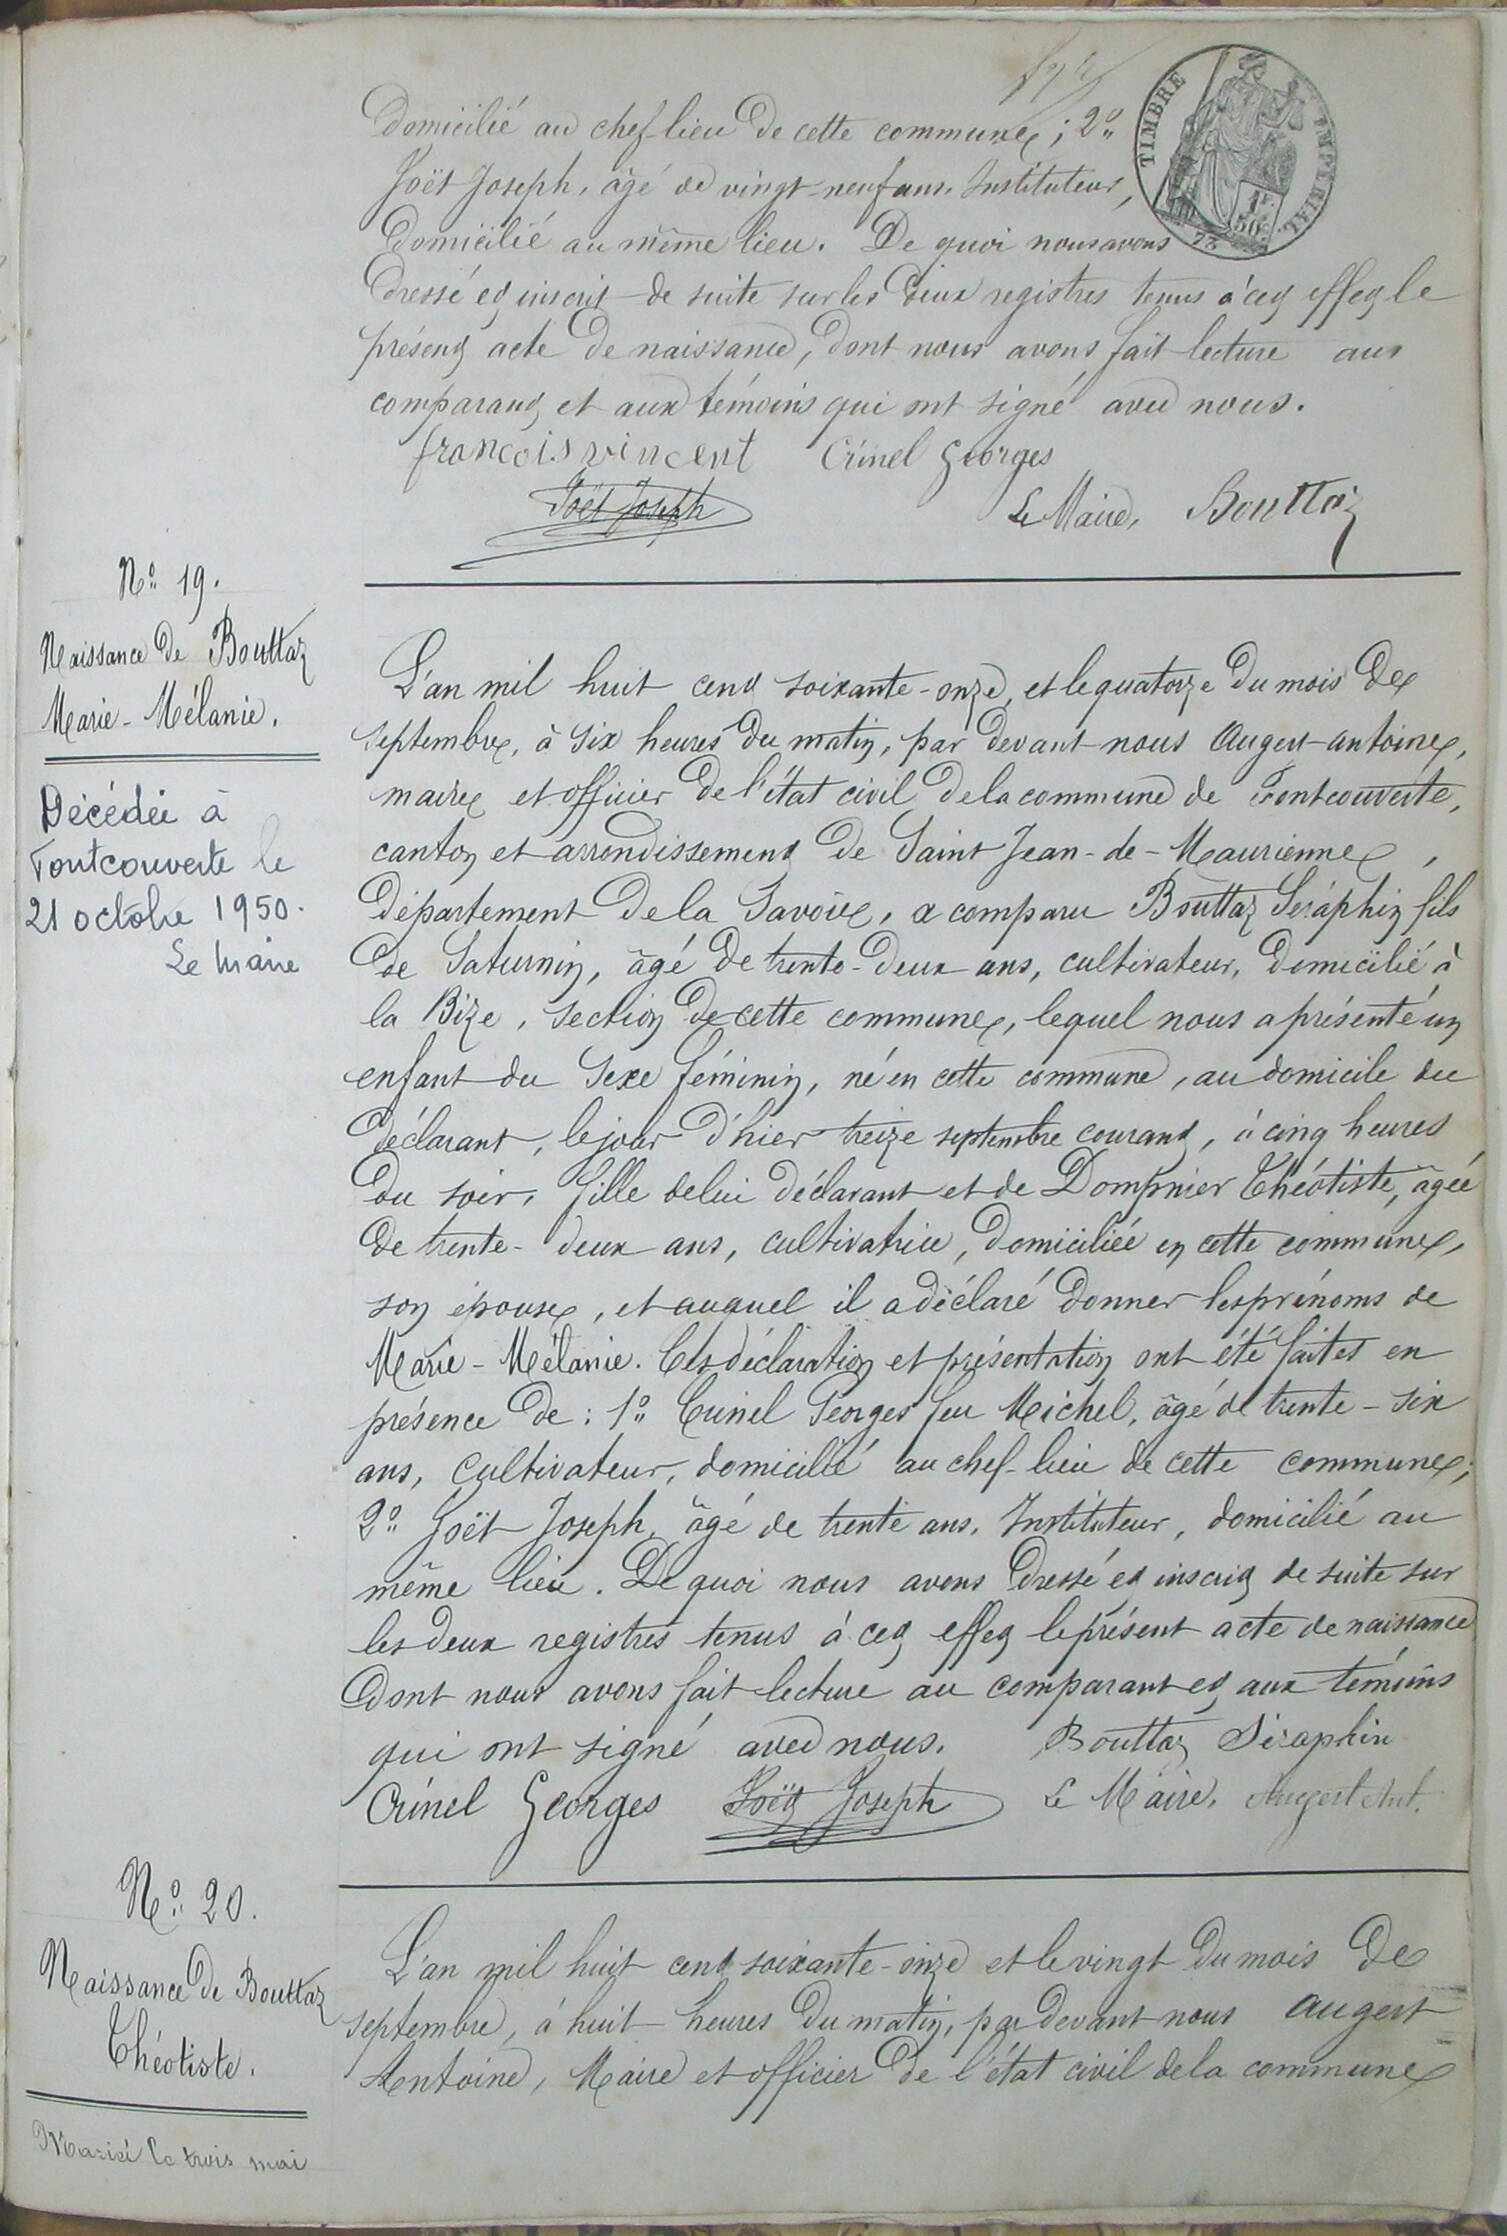 Domicilié au chef-lieu de cette commune ; 2°
Joët Joseph, âgé de vingt-neuf ans, Instituteur,
Domicilié au même lieu. De quoi nous avons
dressé et inscrit de suite sur les deux registres tenus à cet effet le
présent acte de naissance, dont nous avons fait lecture aux
comparant et aux témoins qui ont signé avec nous.
françois vincent Crinel Georges
Joët Joseph Le Maire, Bouttaz
TIMBRE IMPERIAL
1F
50C
73
N° 19.
Naissance de Bouttaz
Marie-Mélanie.
Décédée à
Fontcouverte le
21 octobre 1950.
Le Maire
L'an mil huit cent soixante-onze, et le quatorze du mois de
septembre, à six heures du matin, par devant nous Augert antoine,
maire et officier de l'état civil de la commune de Fontcouverte,
canton et arrondissement de Saint Jean-de-Maurienne,
Département de la Savoie, a comparu Bouttaz Séraphin fils
de Saturnin, âgé de trente-deux ans, cultivateur, domicilié à
la Bize, section de cette commune, lequel nous a présenté un
enfant du sexe féminin, né en cette commune, au domicile du
déclarant, le jour d'hier treize septembre courant, à cinq heures
du soir, fille de lui déclarant et de Dompnier Théotiste, âgée
de trente-deux ans, cultivatrice, domiciliée en cette commune,
son épouse, et auquel il a déclaré donner les prénoms de
Marie-Mélanie. Ces déclaration et présentation ont été faites en
présence de : 1° Crinel Georges feu Michel, âgé de trente-six
ans, cultivateur, domicilié au chef-lieu de cette commune ;
2° Joët Joseph, âgé de trente ans, Instituteur, domicilié au
même lieu. De quoi nous avons dressé et inscrit de suite sur
les deux registres tenus à cet effet le présent acte de naissance
dont nous avons fait lecture au comparant et aux témoins
qui ont signé avec nous. Bouttaz Séraphin
Crinel Georges Joët Joseph Le Maire, Augert Ant.
N° 20.
Naissance de Bouttaz
Théotiste.
Marié le trois mai
L'an mil huit cent soixante-onze et le vingt du mois de
septembre, à huit heures du matin, par devant nous Augert
Antoine, Maire et officier de l'état civil de la commune